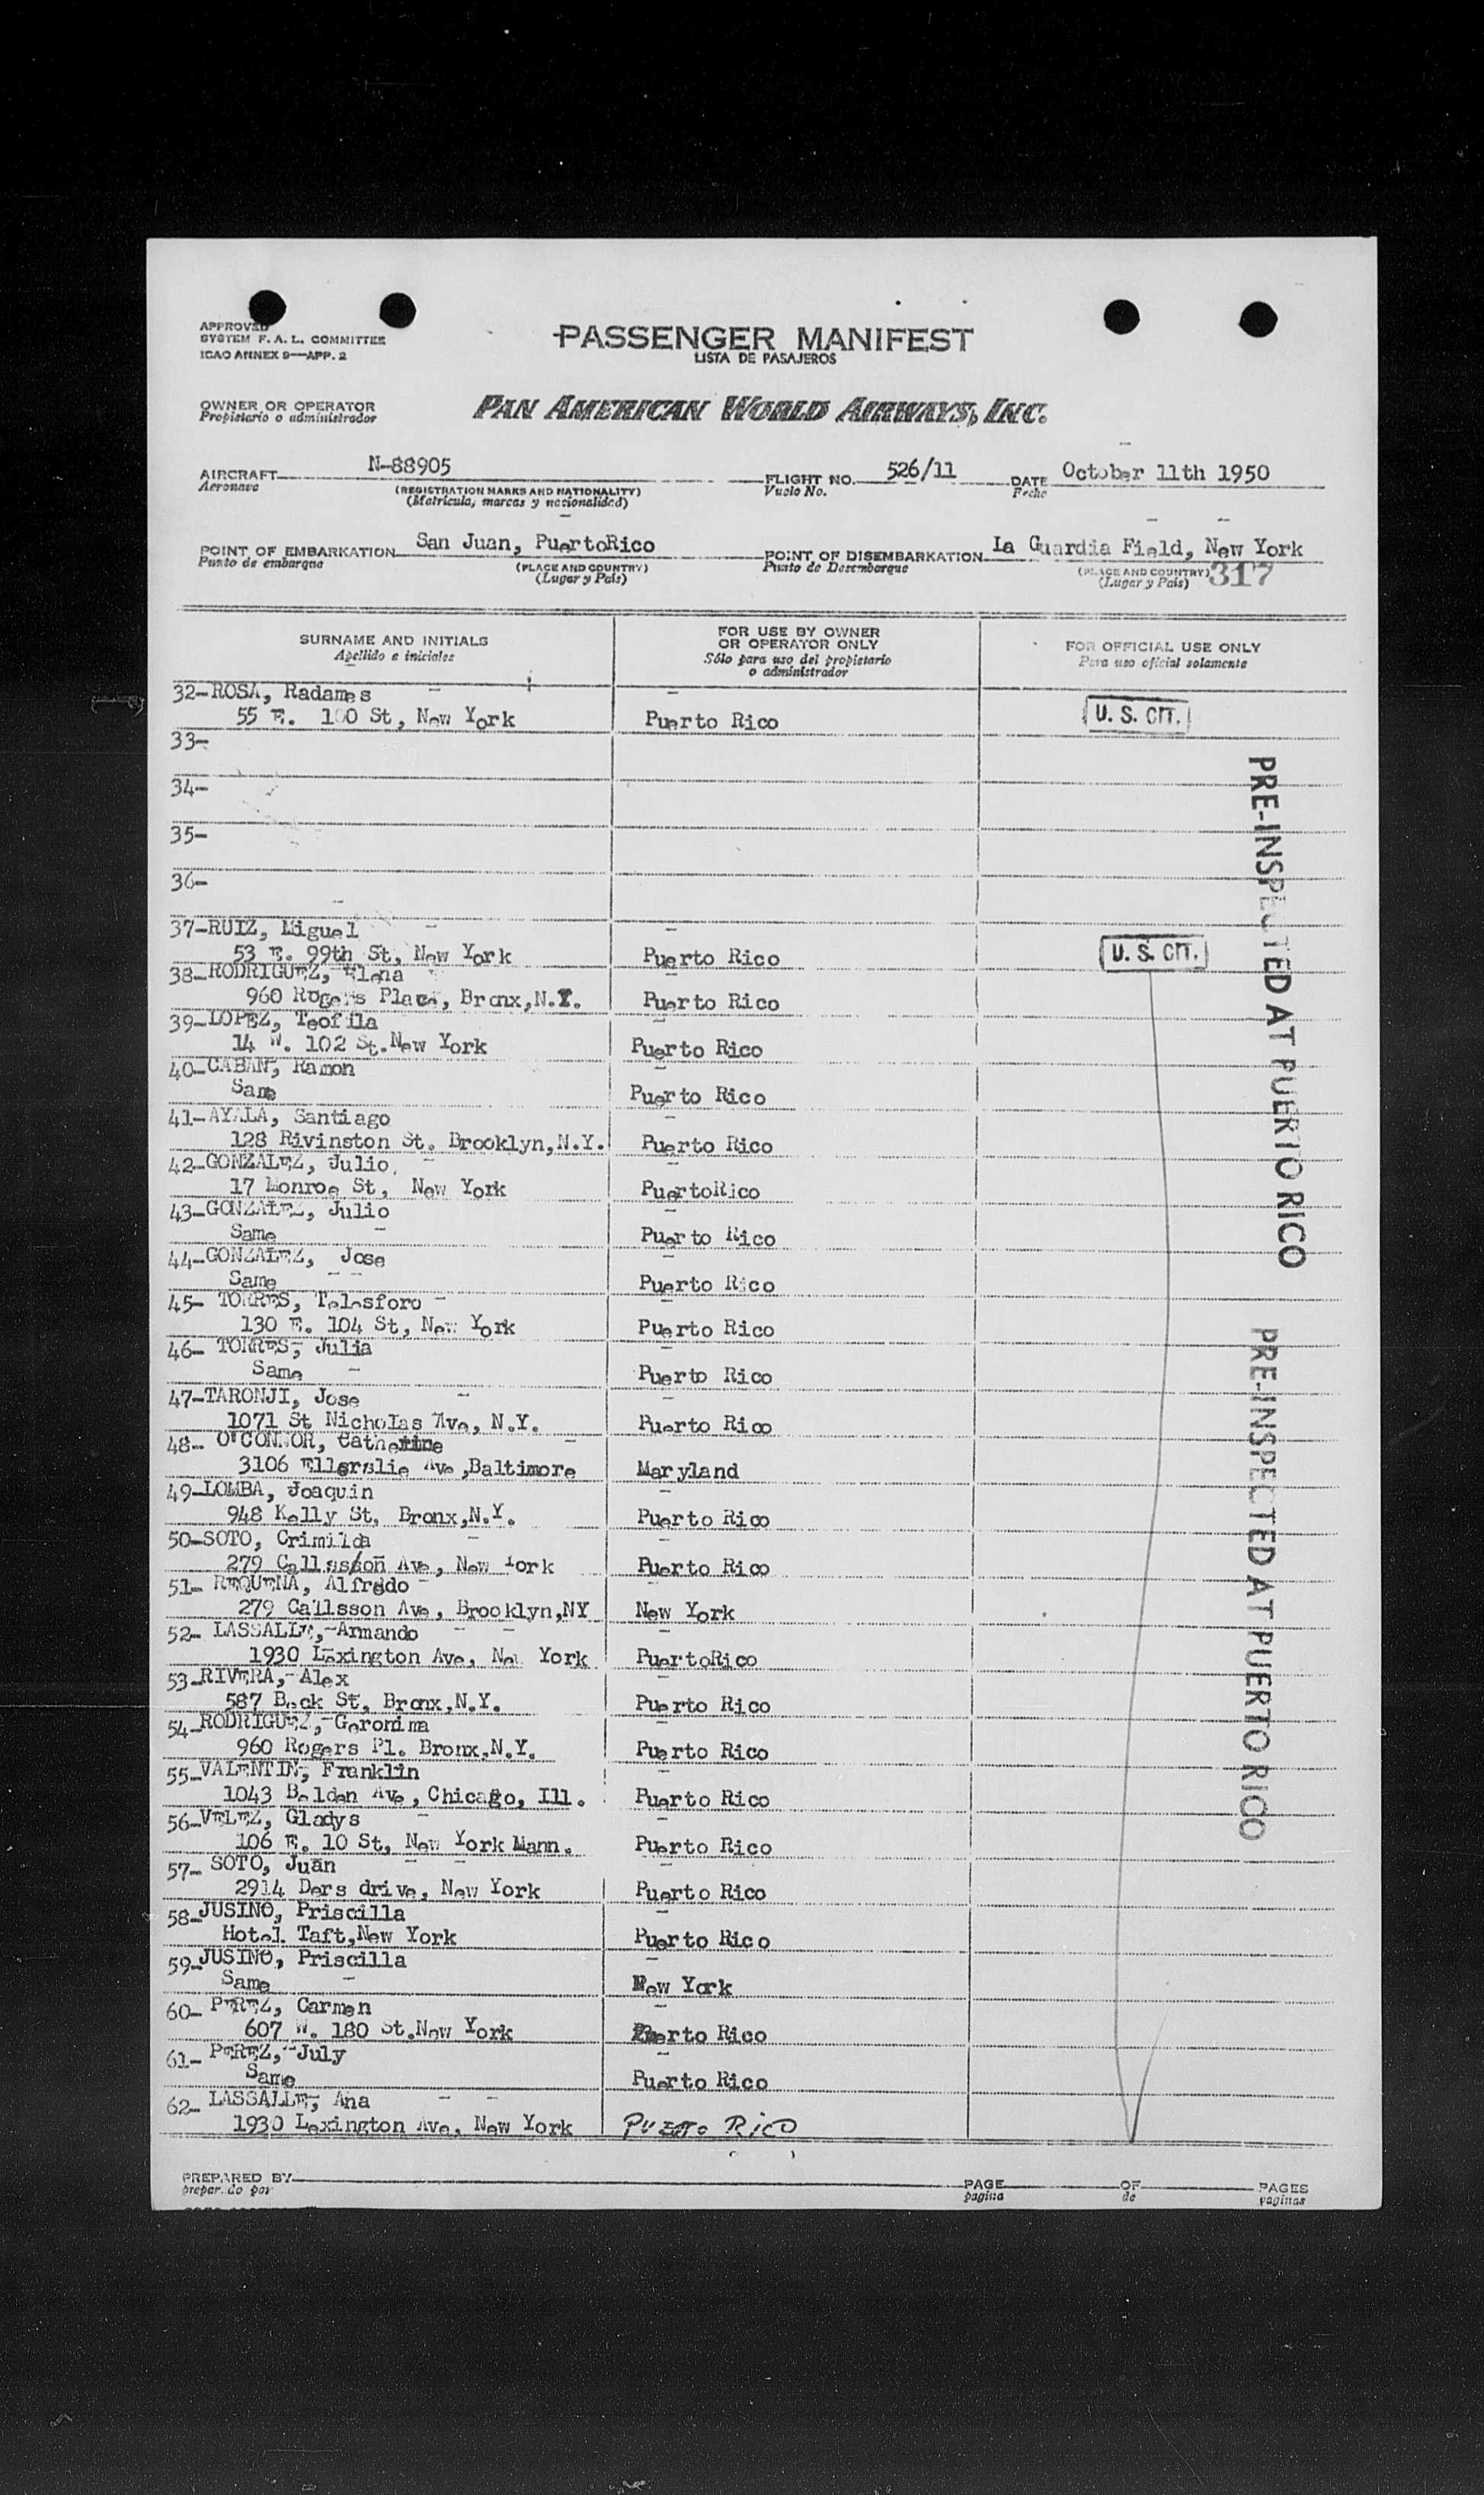 APPROVED
SYSTEM F. A. L. COMMITTEE
ICAO ANNEX 9—APP. 2
PASSENGER MANIFEST
LISTA DE PASAJEROS
OWNER OR OPERATOR
Propietario o administrador
PAN AMERICAN WORLD AIRWAYS, INC.
AIRCRAFT N-88905 FLIGHT NO. 526/11 DATE October 11th 1950
Aeronave (REGISTRATION MARKS AND NATIONALITY) Vuelo No. Fecha
(Matricula, marcas y nacionalidad)
POINT OF EMBARKATION San Juan, PuertoRico POINT OF DISEMBARKATION La Guardia Field, New York
Punto de embarque (PLACE AND COUNTRY) Punto de Desembarque (PLACE AND COUNTRY) 317
(Lugar y Pais) (Lugar y Pais)
SURNAME AND INITIALS FOR USE BY OWNER OR OPERATOR ONLY FOR OFFICIAL USE ONLY
Apellido e iniciales Sólo para uso del propietario o administrador Para uso oficial solamente
32-ROSA, Radames
55 E. 100 St, New York Puerto Rico U. S. CIT.
33-
34-
35-
36-
37-RUIZ, Miguel
53 E. 99th St, New York Puerto Rico U. S. CIT.
38-RODRIGUEZ, Elena
960 Rogers Place, Bronx,N.Y. Puerto Rico
39-LOPEZ, Teofila
14 W. 102 St.New York Puerto Rico
40-CABAN, Ramon
Same Puerto Rico
41-AYALA, Santiago
128 Rivinston St. Brooklyn,N.Y. Puerto Rico
42-GONZALEZ, Julio
17 Monroe St, New York PuertoRico
43-GONZALEZ, Julio
Same Puerto Rico
44-GONZALEZ, Jose
Same Puerto Rico
45- TORRES, Telesforo
130 E. 104 St, New York Puerto Rico
46- TORRES, Julia
Same Puerto Rico
47-TARONJI, Jose
1071 St Nicholas Ave, N.Y. Puerto Rico
48- O'CONNOR, Catherine
3106 Ellerslie Ave ,Baltimore Maryland
49-LOMBA, Joaquin
948 Kelly St, Bronx,N.Y. Puerto Rico
50-SOTO, Crimilda
279 Ave, New York Puerto Rico
51- REQUENA, Alfredo
279 Callsson Ave, Brooklyn,NY New York
52- LASSALLE, Armando
1930 Lexington Ave, New York PuertoRico
53-RIVERA, Alex
587 Beck St, Bronx,N.Y. Puerto Rico
54-RODRIGUEZ, Geronima
960 Rogers Pl. Bronx,N.Y. Puerto Rico
55-VALENTIN, Franklin
1043 Belden Ave, Chicago, Ill. Puerto Rico
56-VELEZ, Gladys
106 E. 10 St, New York Mann. Puerto Rico
57- SOTO, Juan
2914 Ders drive, New York Puerto Rico
58-JUSINO, Priscilla
Hotel Taft,New York Puerto Rico
59-JUSINO, Priscilla
Same New York
60- PEREZ, Carmen
607 W. 180 St.New York Puerto Rico
61- PEREZ, July
Same Puerto Rico
62- LASSALLE, Ana
1930 Lexington Ave, New York Puerto Rico
PRE-INSPECTED AT PUERTO RICO
PRE-INSPECTED AT PUERTO RICO
PREPARED BY PAGE OF PAGES
preparado por pagina de paginas